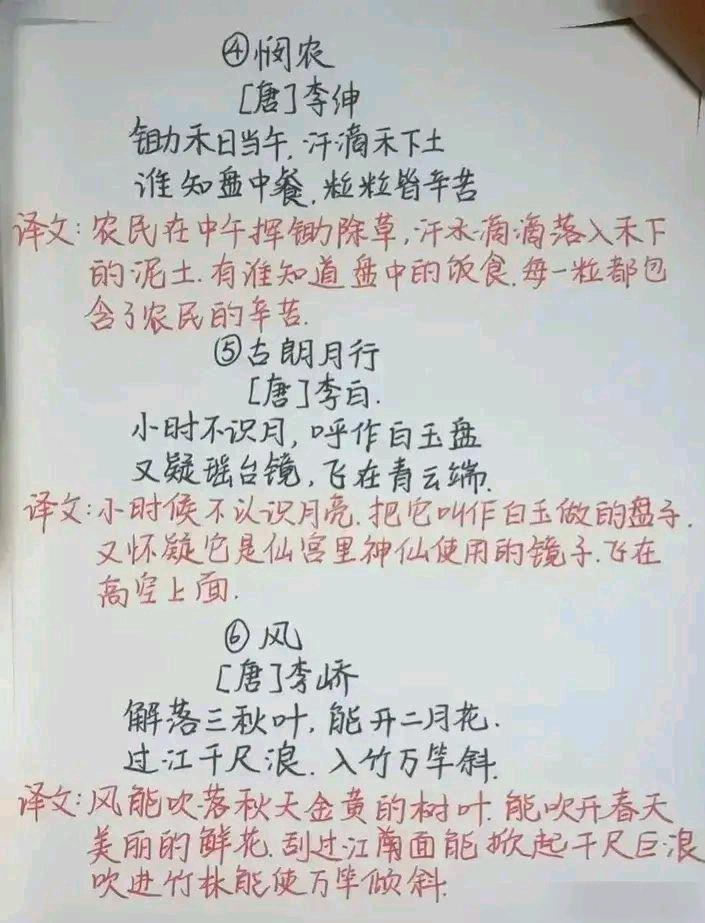 ④悯农
[唐]李绅
锄禾日当午,汗滴禾下土
谁知盘中餐,粒粒皆辛苦
译文:农民在中午挥锄除草,汗水滴滴落入禾下
的泥土.有谁知道盘中的饭食.每一粒都包
含了农民的辛苦.
⑤古朗月行
[唐]李白.
小时不识月,呼作白玉盘
又疑瑶台镜,飞在青云端.
译文:小时候不认识月亮.把它叫作白玉做的盘子.
又怀疑它是仙宫里神仙使用的镜子.飞在
高空上面.
⑥风
[唐]李峤
解落三秋叶,能开二月花.
过江千尺浪.入竹万竿斜.
译文:风能吹落秋天金黄的树叶.能吹开春天
美丽的鲜花.刮过江南面能掀起千尺巨浪
吹进竹林能使万竿倾斜.